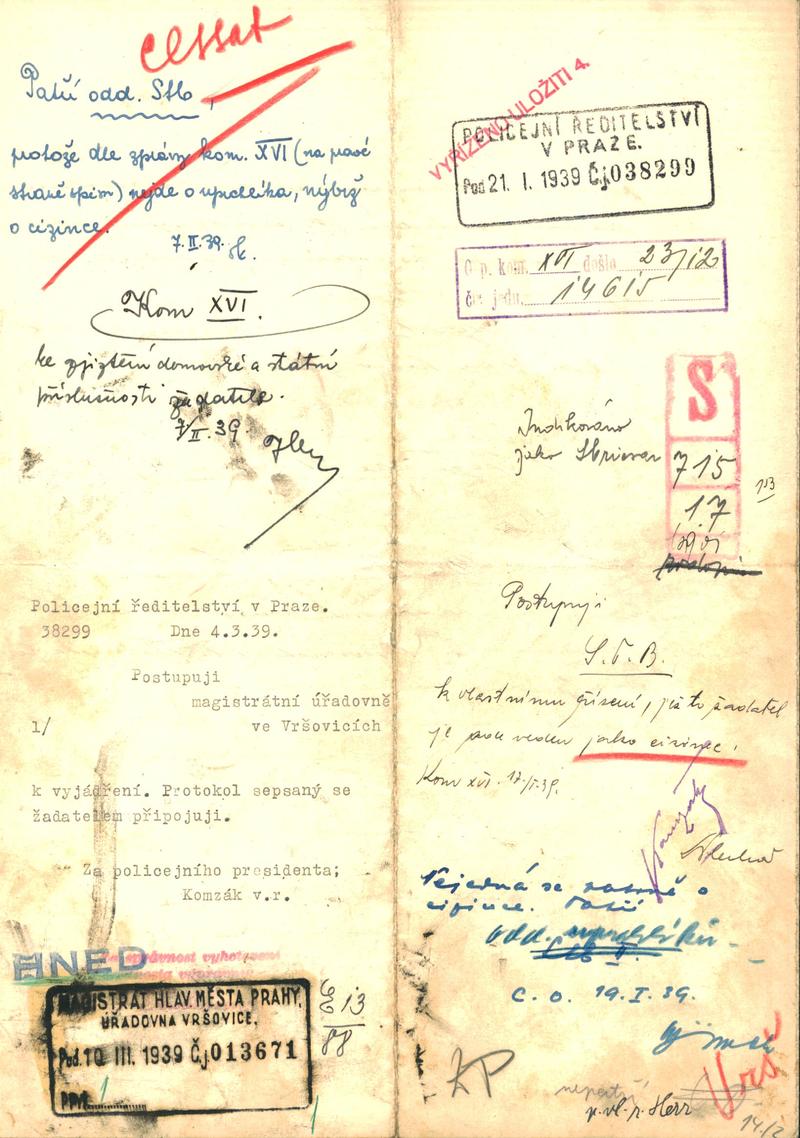 cessat
Patří odd. Stb,
protože dle zprávy kom. XVI (na pravé
straně spisu) nejde o uprchlíka, nýbrž
o cizince.
7.II.39.
Kom XVI.
ke zjištění domovské a státní
příslušnosti žadatele.
7/II.39
Policejní ředitelství v Praze.
38299 Dne 4.3.39.
Postupuji
magistrátní úřadovně
1/ ve Vršovicích
k vyjádření. Protokol sepsaný se
žadatelem připojuji.
Za policejního presidenta;
Komzák v.r.
HNED
Za správnost vyhotovení
MAGISTRÁT HLAV. MĚSTA PRAHY,
ÚŘADOVNA VRŠOVICE.
Pod. 10 III. 1939 Čj 013671
Příl. 1
E 13
88
VYŘÍZENO ULOŽITI 4.
POLICEJNÍ ŘEDITELSTVÍ
V PRAZE.
Pod 21. I. 1939 Čj 038299
O. p. kom. XVI došlo 23/12
čís. jedn. 14615
S
Indikováno
jako 715
17
Postupuji
S.t.B.
k vlastnímu řízení, ježto žadatel
je zde veden jako cizinec.
Kom XVI. 17/I.39.
Nejedná se o
cizince. Patří
odd. uprchlíků
C. O. 19.I.39.
KP
p. vl. r. Herr
14/2